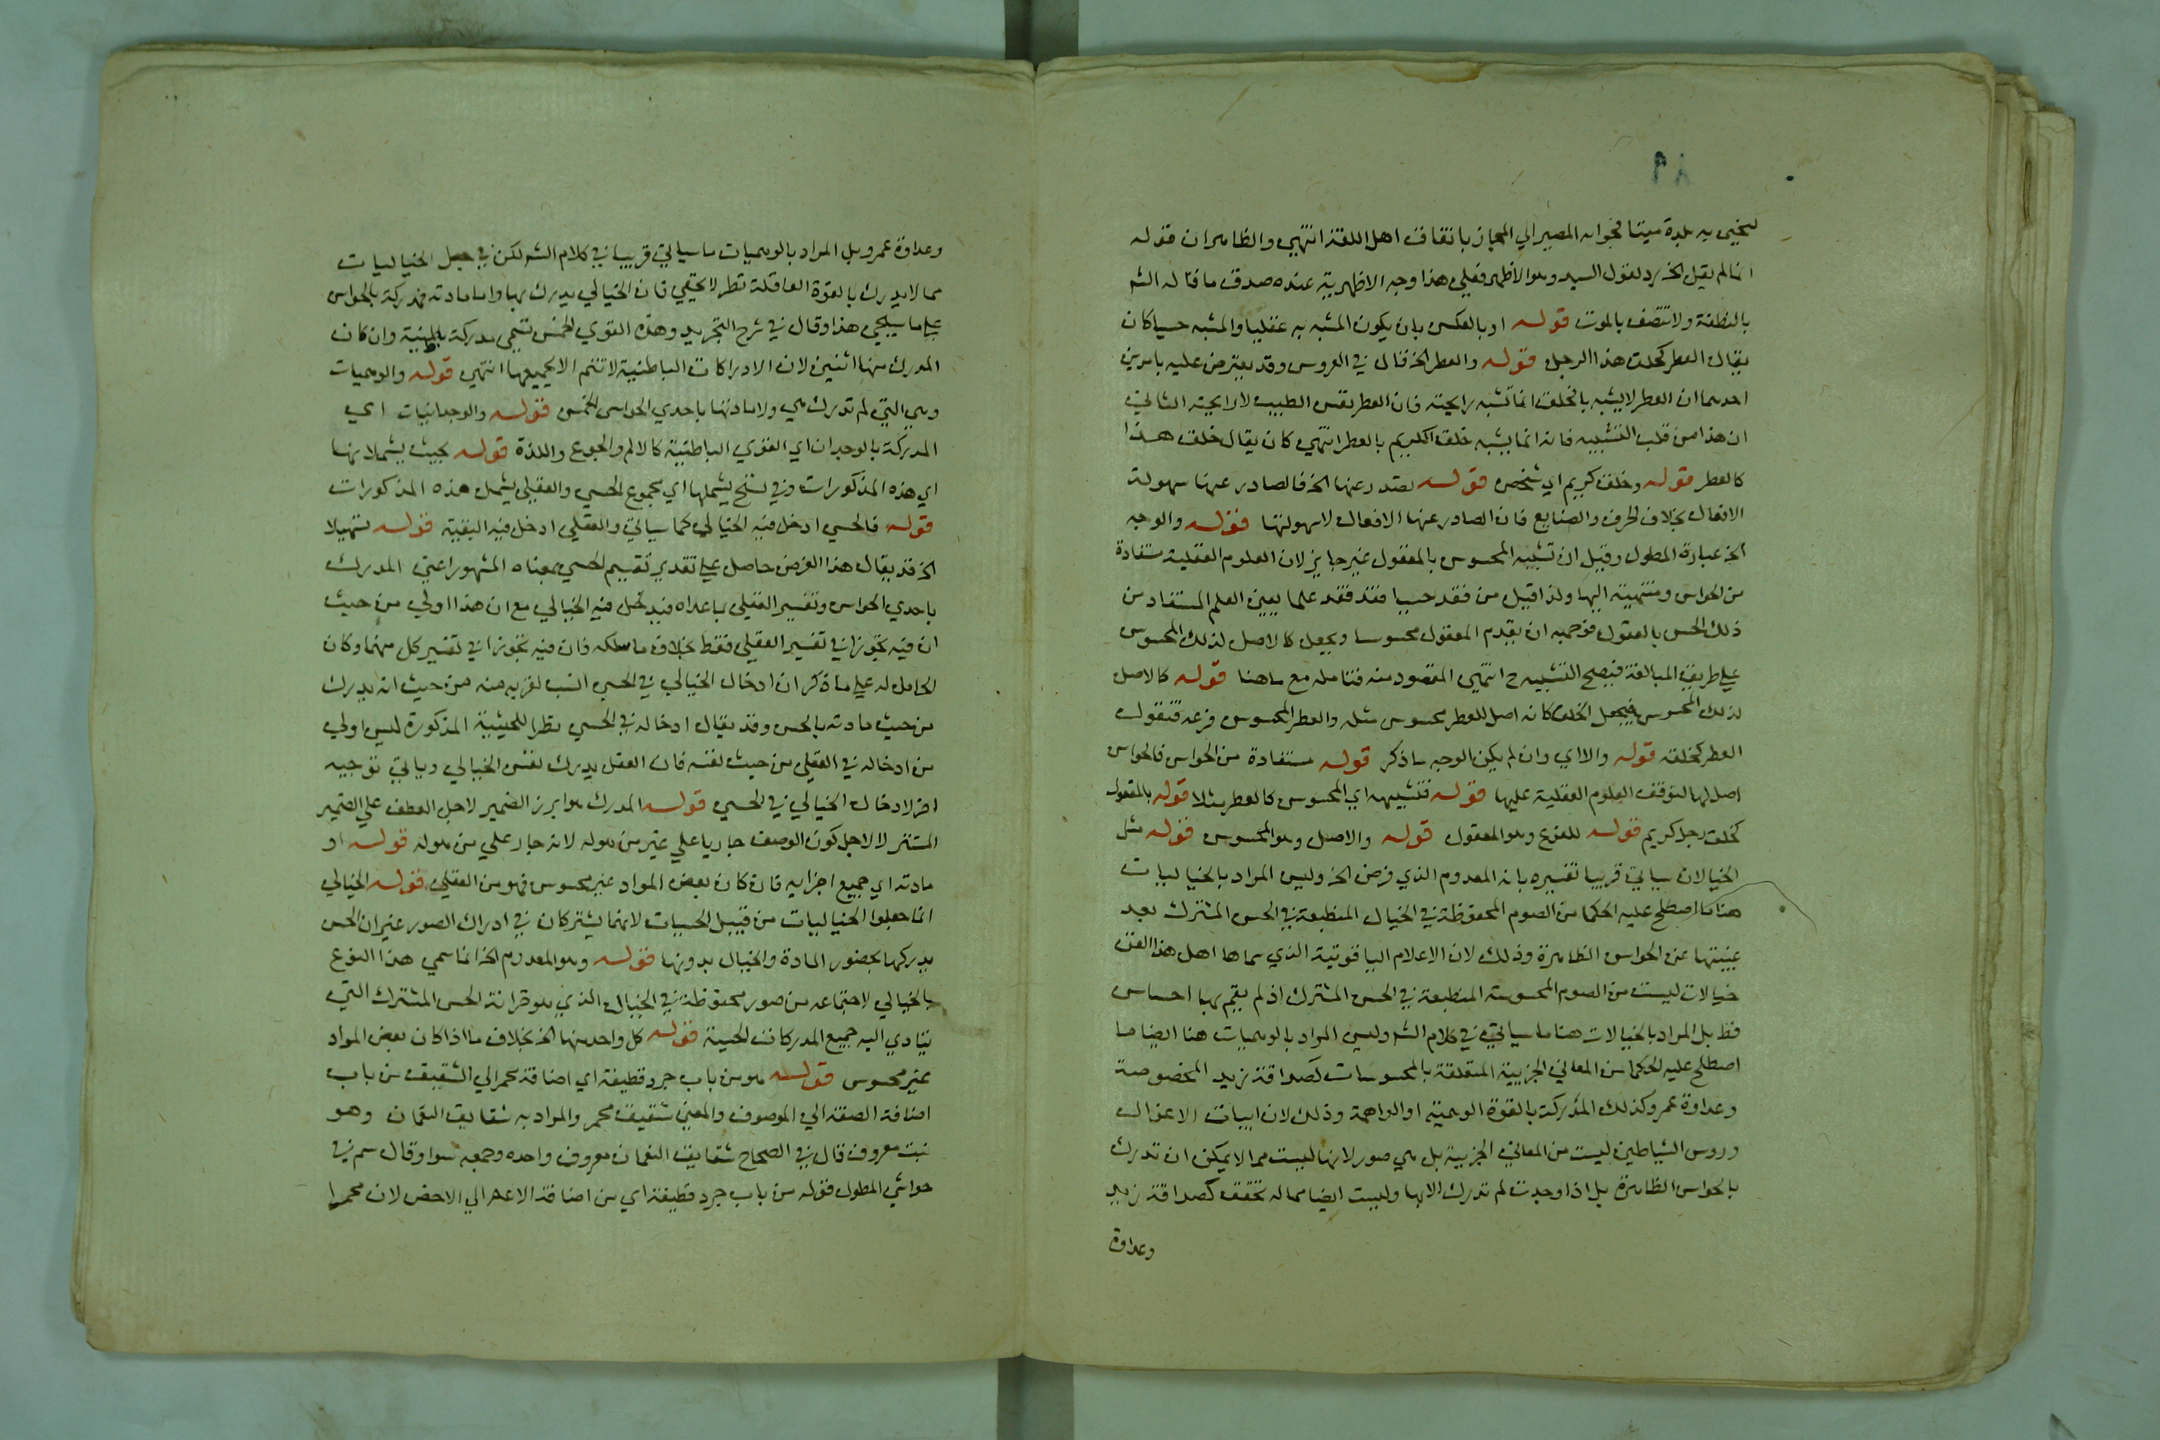 ٨٩
لنحيي به بلدة ميتا فجوابه المصير الي المجاز باتفاق اهل اللغة انتهي والظاهر ان قوله
انما لم يقل الخ رد لقول السيد وهو الاظهر فعلي هذا وجه الاظهرية عنده صدق ما قاله الشه
بالنطفة ولا تتصف بالموت قوله او بالعكس بان يكون المشبه به عقليا والمشبه حسيا كان
يقال العطر كخلق هذا الرجل قوله والعطر الخ قال في العروس وقد يعترض عليه بامرين
احدهما ان العطر لا يشبه بالخلق انما تشبه رايحته فان العطر نفس الطيب لا رايحته الثاني
ان هذا من قلب التشبيه فانه انما يشبه خلق الكريم بالعطر انتهي كان يقال خلق هذا
كالعطر قوله وخلق كريم اي شخص قوله تصدر عنها الخ فالصادر عنها سهولة
الافعال بخلاف الحرف والصنايع فان الصادر عنها الافعال لا سهولتها قوله والوجه
الخ عبارة المطول وقيل ان تشبيه المحسوس بالمعقول غير جايز لان العلوم العقلية مستفادة
من الحواس ومنتهية اليها ولذا قيل من فقد حسا فقد فقد علما يعني العلم المستفاد من
ذلك الحس بالعقول فوجهه ان يقدم المعقول محسوسا ويجعل كالاصل لذلك المحسوس
علي طريق المبالغة فيصح التشبيه ح انتهي المقصود منه فتامله مع ما هنا قوله كالاصل
لذلك المحسوس فيجعل الخلق كانه اصل للعطر محسوس مثله والعطر المحسوس فرعه فتقول
العطر كخلقه قوله والا اي وان لم يكن الوجه ما ذكر قوله مستفادة من الحواس فالحواس
اصل لها لتوقف العلوم العقلية عليها قوله فتشبيهه اي المحسوس كالعطر مثلا قوله بالمعقول
كخلق رجل كريم قوله للفرع وهو المعقول قوله والاصل وهو المحسوس قوله مثل
الخيالان سياتي قريبا تفسيره بانه المعدوم الذي فرض الخ وليس المراد بالخياليات
هنا ما اصطلح عليه الحكما من الصور المحفوظة في الخيال المنطبعة في الحس المشترك بعد
غيبتها عن الحواس الظاهرة وذلك لان الاعلام الياقوتية الذي سماها اهل هذا الفن
خيالات ليست من الصور المحسوسة المنطبعة في الحس المشترك اذ لم يقم بها احساس
قط بل المراد بالخيالات هنا ما سياتي في كلام الشه وليس المراد بالوهميات هنا ايضا ما
اصطلح عليه الحكما من المعاني الجزيية المتعلقة بالمحسوسات كصداقة زيد المخصوصة
وعداوة عمرو كذلك المدركة بالقوة الوهمية او الواهمة وذلك لان انياب الاغوال
وروس الشياطين ليست من المعاني الجزيية بل هي صور لانها ليست مما لا يمكن ان تدرك
بالحواس الظاهرة بل اذا وجدت لم تدرك الا بها وليست ايضا مما له تحقق كصداقة زيد
وعداوة
وعداوة عمرو بل المراد بالوهميات ما سياتي قريبا في كلام الشه لكن في جعل الخياليات
مما لا يدرك بالقوة العاقلة نظر لا يخفي فان الخيالي يدرك بها واما مادته فمدركة بالحواس
علي ما سيجي هذا وقال في شرح التجريد وهذه القوي الخمس تسمي مدركة باطنية وان كان
المدرك منها اثنين لان الادراكات الباطنية لا تتم الا بجميعها انتهي قوله والوهميات
وهي التي لم تدرك هي ولا مادتها باحدي الحواس الخمس قوله والوجدانيات اي
المدركة بالوجدان اي القوي الباطنية كالالم والجوع واللذة قوله بحيث يشملانها
اي هذه المذكورات وفي نسخ يشملها اي مجموع الحسي والعقلي يشمل هذه المذكورات
قوله فالحسي ادخل فيه الخيالي كما سياتي والعقلي ادخل فيه البقية قوله تسهيلا
الخ قد يقال هذا الغرض حاصل علي تقدير تقسيم الحسي بمعناه المشهور اعني المدرك
باحدي الحواس وتفسير العقلي بما عداه فيدخل فيه الخيالي مع ان هذا اولي من حيث
ان فيه تجوزا في تفسير العقلي فقط بخلاف ما سلكه فان فيه تجوزا في تفسير كل منهما وكان
الحامل له علي ما ذكر ان ادخال الخيالي في الحسي انسب لقربه منه من حيث انه يدرك
من حيث مادته بالحس وقد يقال ادخاله في الحسي نظرا للحيثية المذكورة ليس اولي
من ادخاله في العقلي من حيث نفسه فان العقل يدرك نفس الخيالي وياتي توجيه
اخر لادخال الخيالي في الحسي قوله المدرك هو ابرز الضمير لاجل العطف علي الضمير
المستتر لا لاجل كون الوصف جاريا علي غير من هو له لانه جار علي من هو له قوله او
مادته اي جميع اجزايه فان كان بعض المواد غير محسوس فهو من العقلي قوله الخيالي
انما جعلوا الخياليات من قبيل الحسيات لانهما يشتركان في ادراك الصور غير ان الحس
يدركها بحضور المادة والخيال بدونها قوله وهو المعدوم الخ انما سمي هذا النوع
بالخيالي لاجتماعه من صور محفوظة في الخيال الذي هو قرانة الحس المشترك التي
يتادي اليه جميع المدركات الحسية قوله كل واحد منها الخ بخلاف ما اذا كان بعض المواد
غير محسوس قوله هو من باب جرد قطيفة اي اضافة محمر الي الشقيق من باب
اضافة الصفة الي الموصوف والمعني شقيق محمر والمراد به شقايق النعمان وهو
نبت معروف قال في الصحاح شقايق النعمان معروف واحده وجمعه سوا وقال سم في
حواشي المطول قوله من باب جرد قطيفة اي من اضافة الاعم الي الاخص لان محمرا